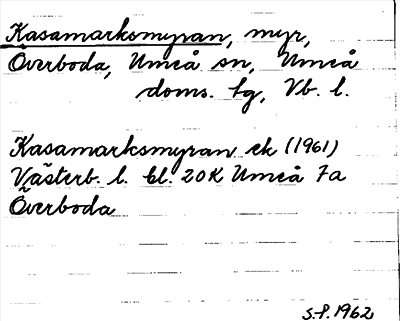 Kasamarksmyran, myr,
Överboda, Umeå sn, Umeå
doms. tg, Vb. l.
Kasamarksmyran ek (1961)
Västerb. l. Bl. 20K Umeå 7a
Överboda
S.P. 1962